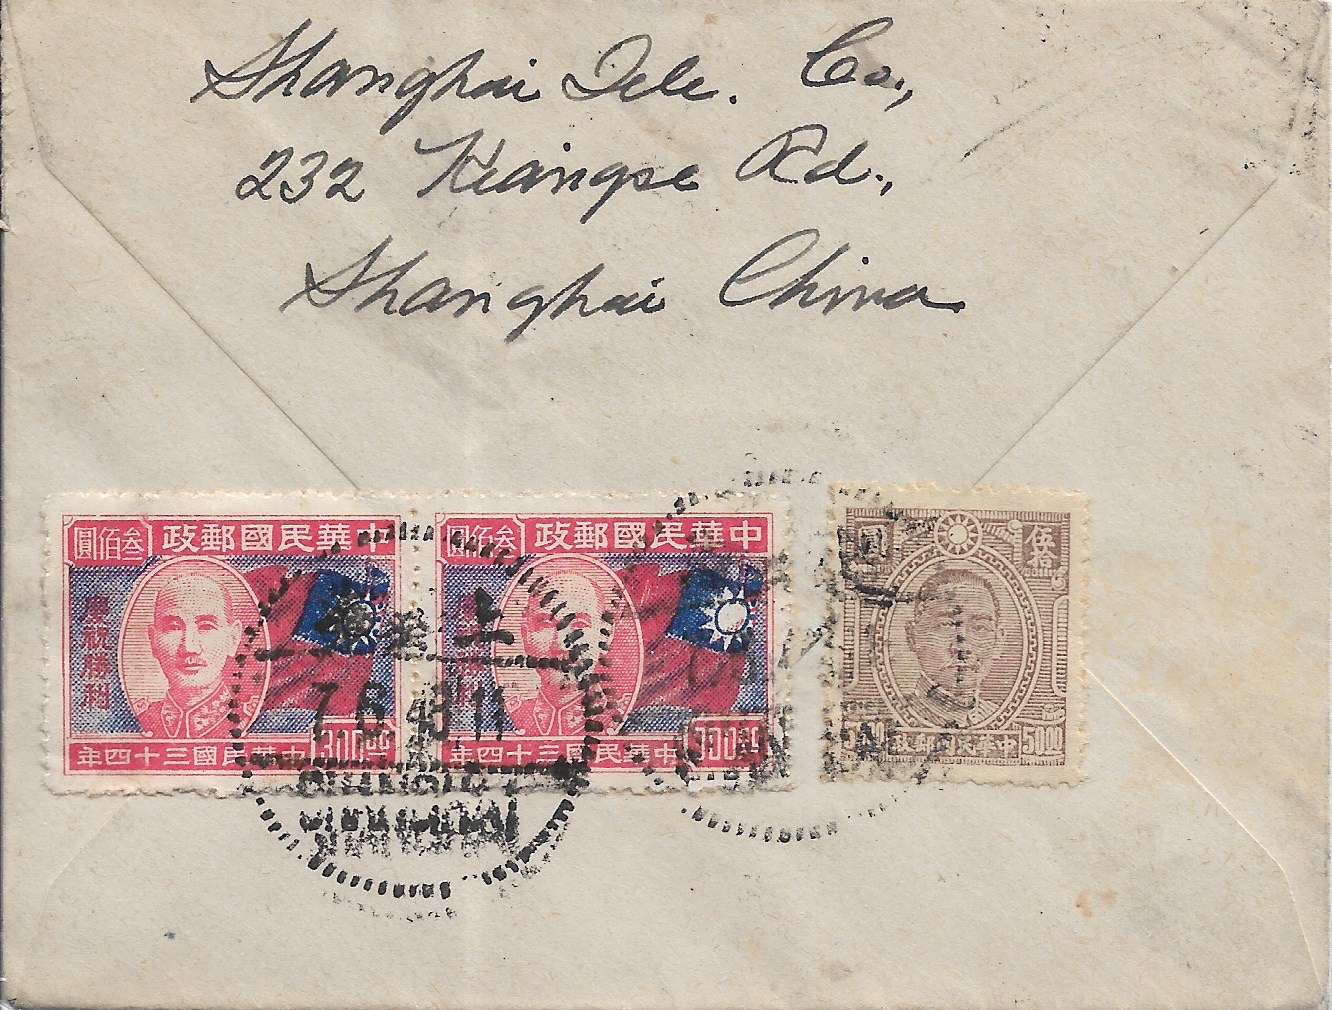 Shanghai Tele. Co.,
232 Kiangse Rd.,
Shanghai China
政郵國民華中 圓佰叁
慶政勝利
年四十三國民華中 300.00
政郵國民華中 圓佰叁
年四十三國民華中 300.00
伍拾
政郵國民華中 50.00
7.6.48.11
SHANGHAI